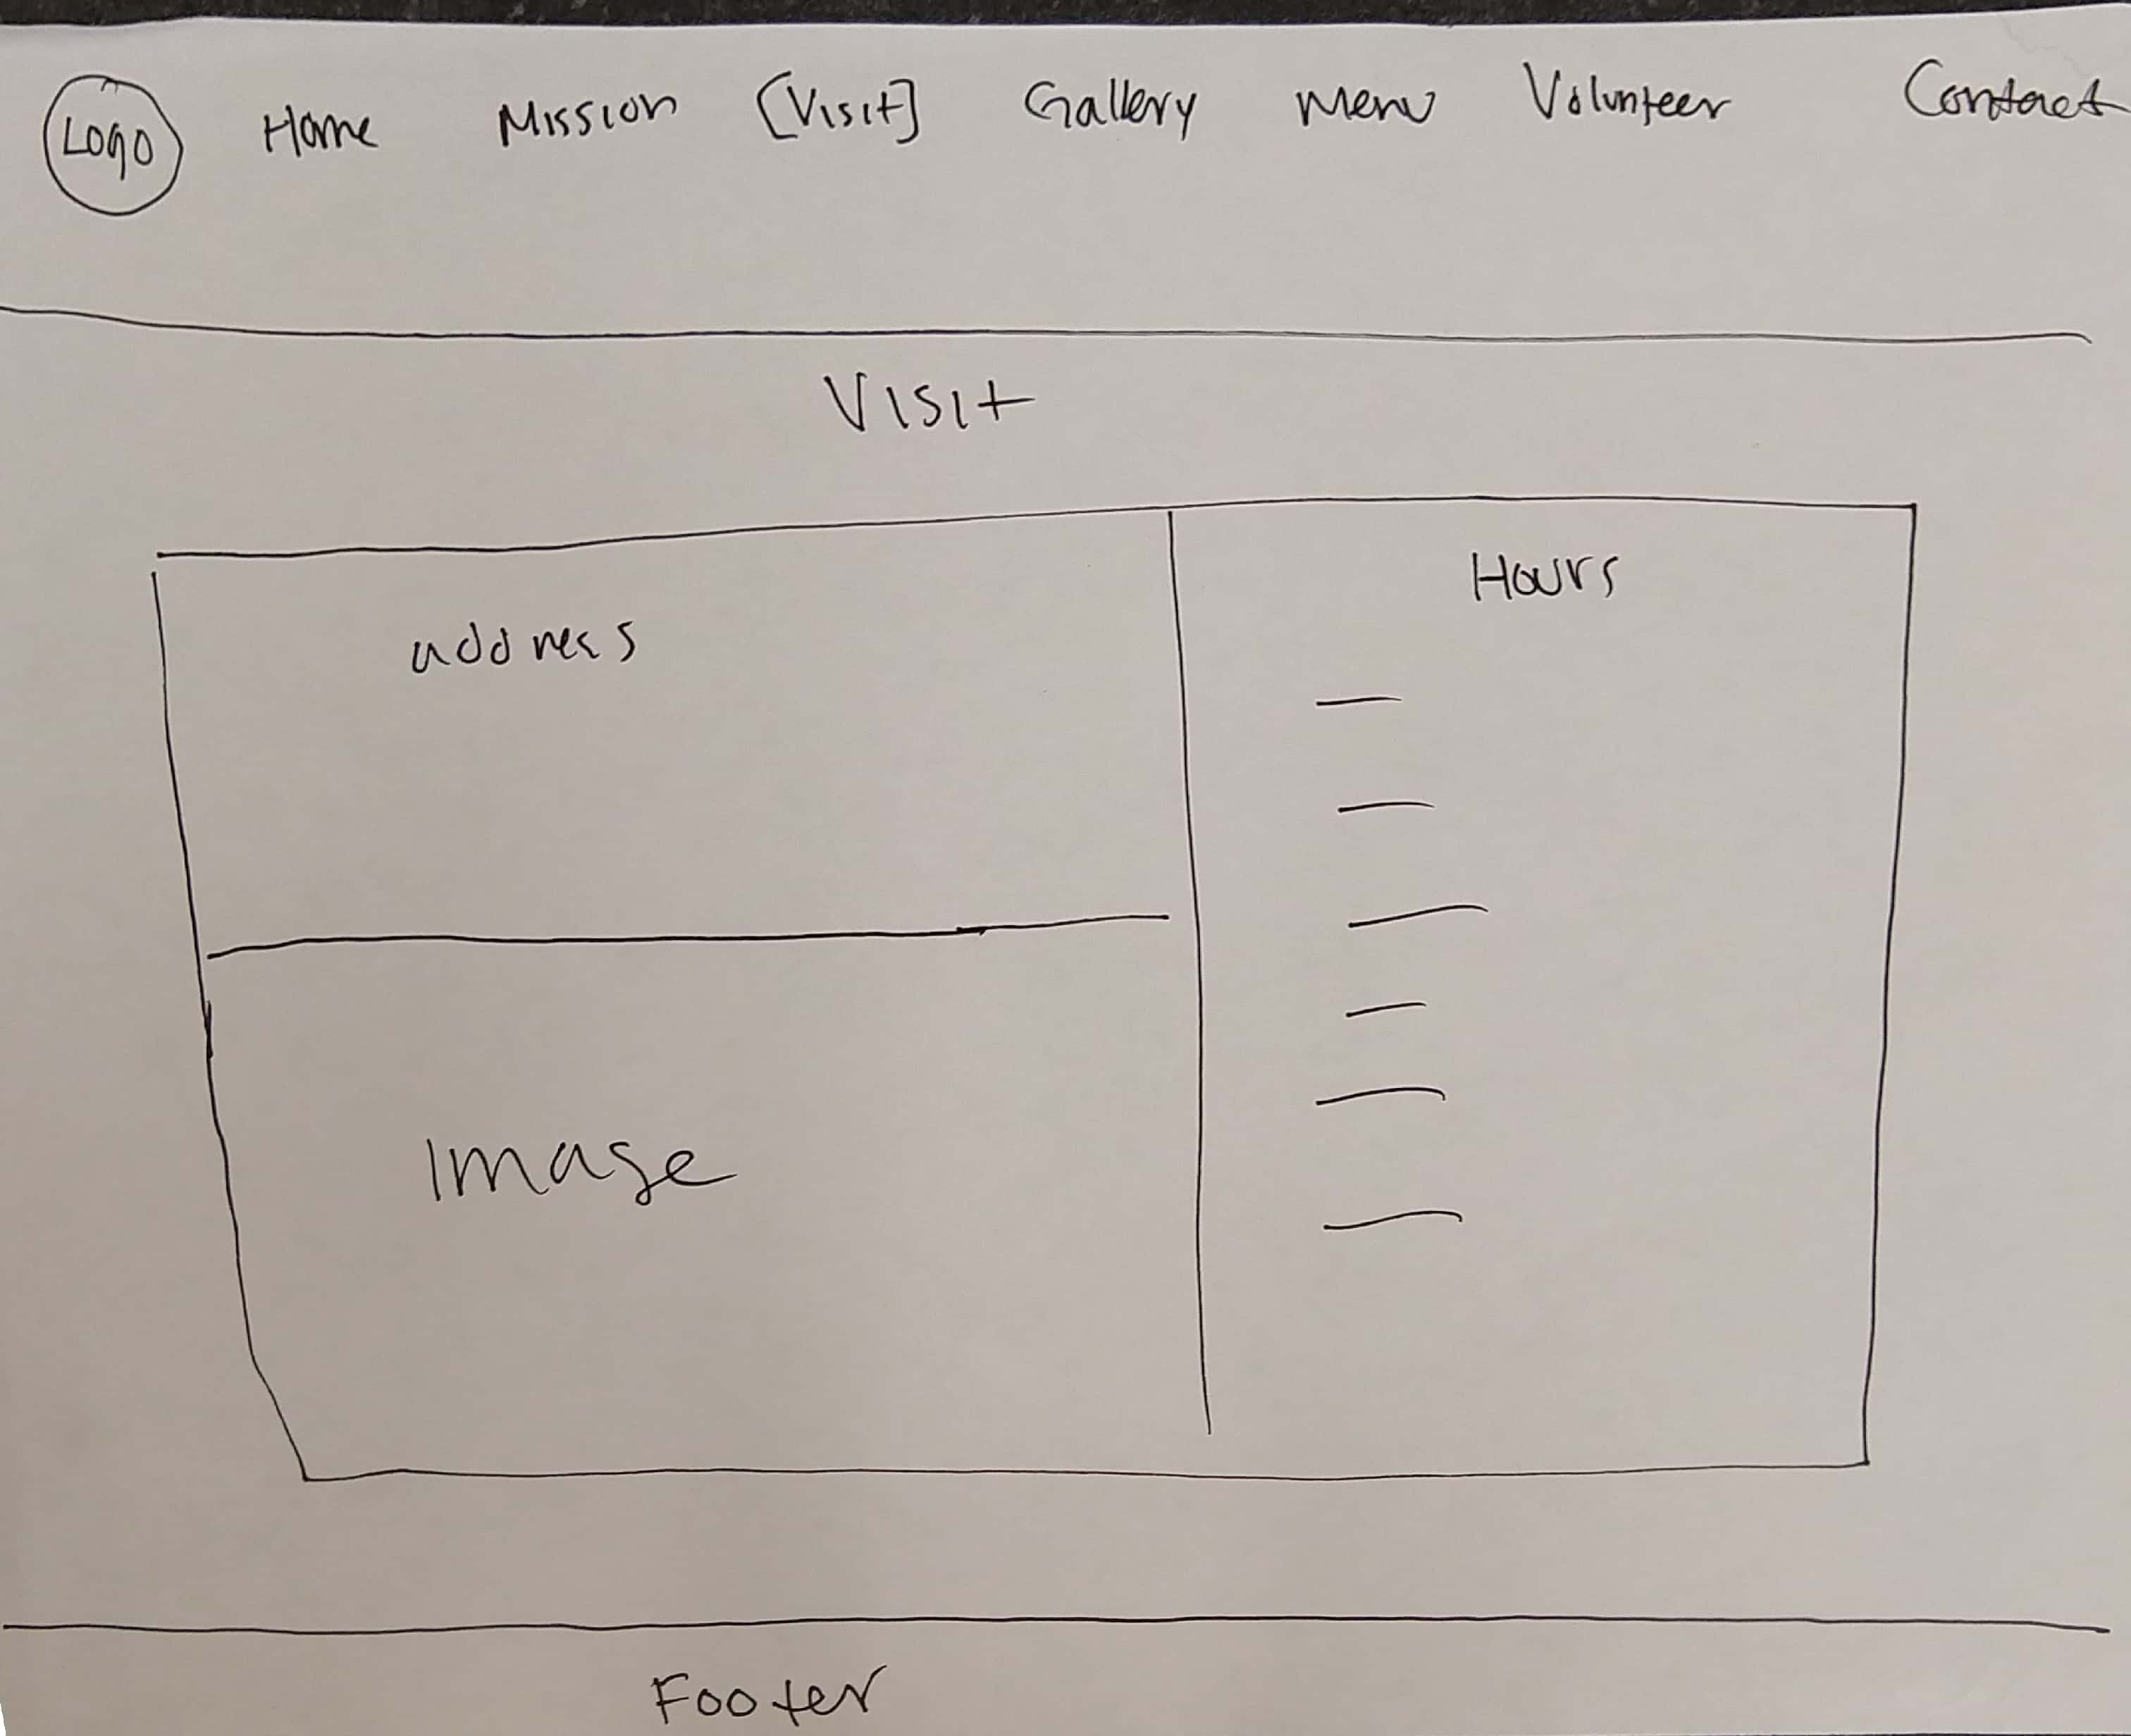 Logo Home Mission [Visit] Gallery Menu Volunteer Contact
Visit
address
Hours
Image
Footer